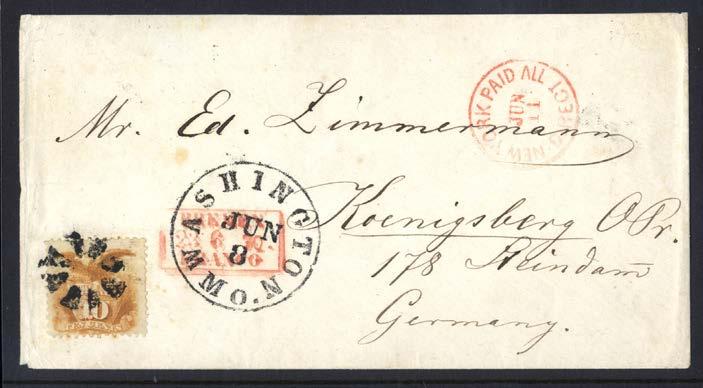 NEW YORK PAID ALL DIRECT
JUN
11
Mr. Ed. Zimmermann
WASHINGTON. MO.
JUN
8
Koenigsberg O Pr.
178 Steindam
Germany.
10